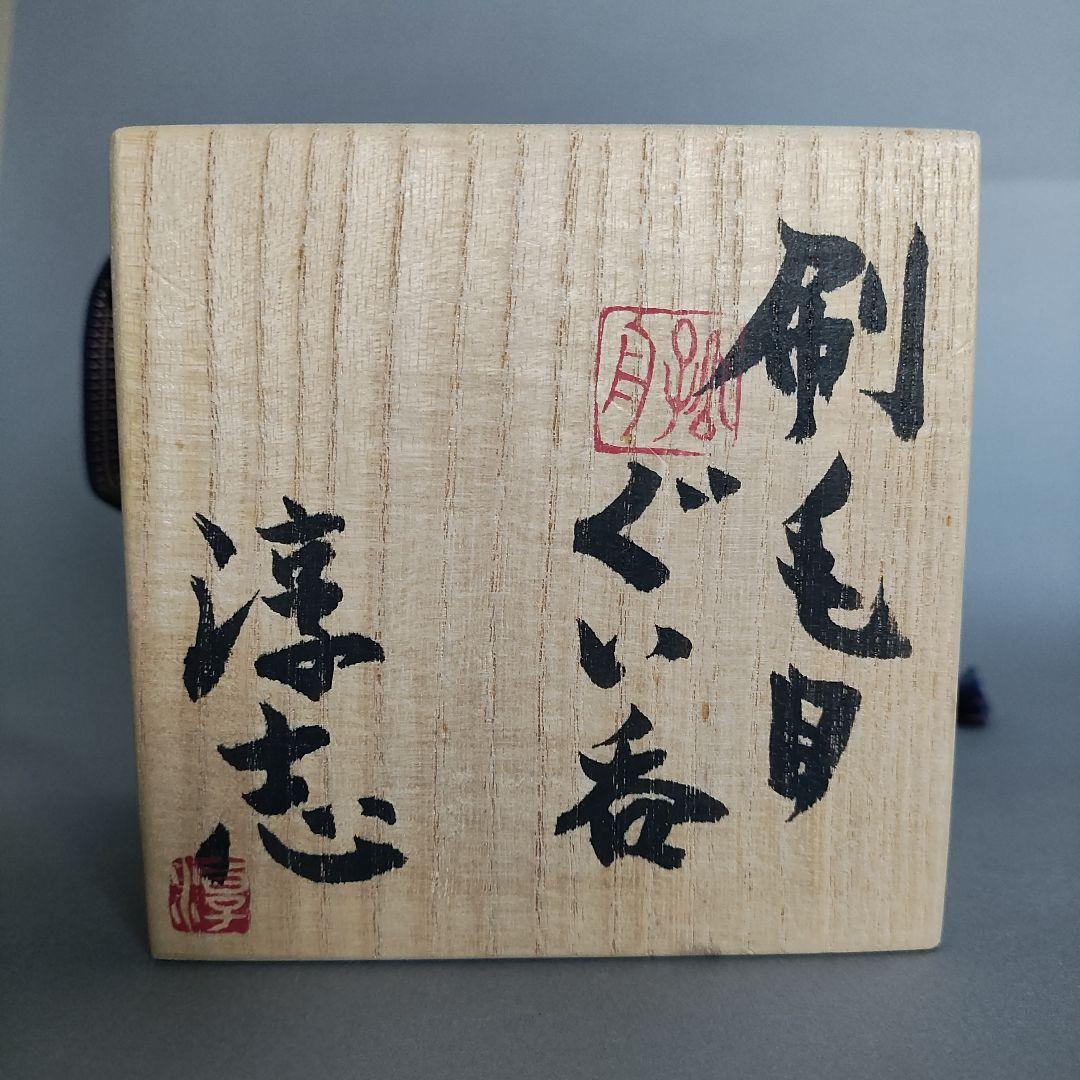 刷毛目
ぐい呑
淳志
淳